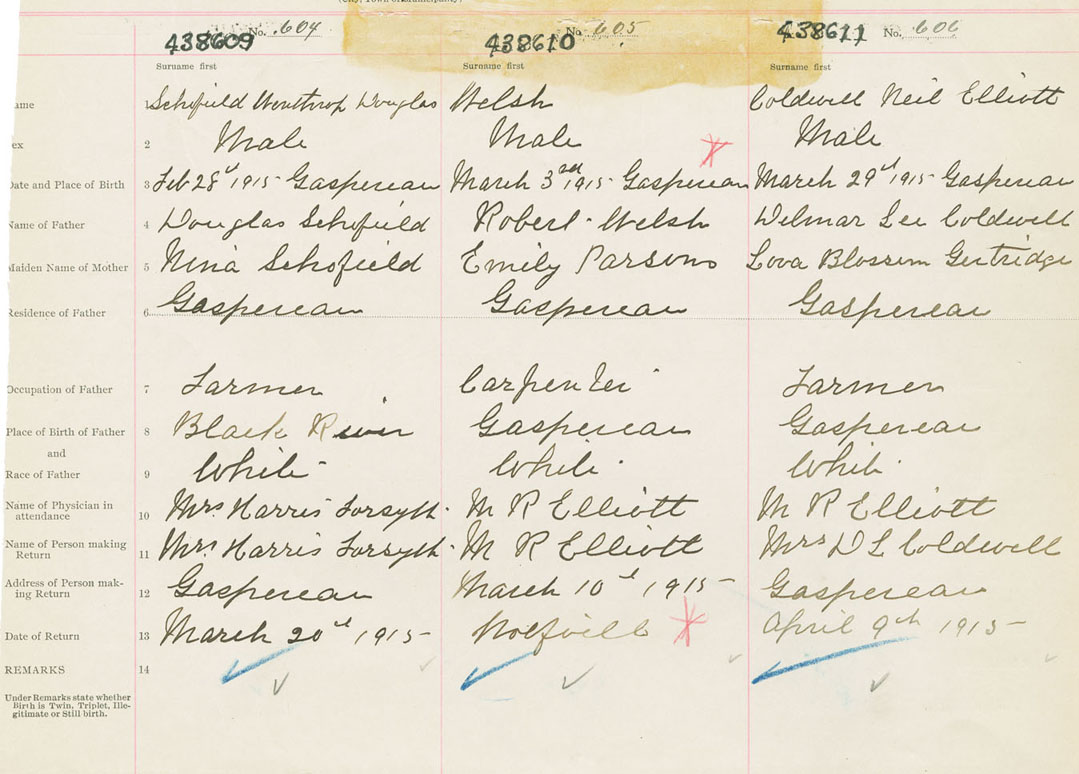 (City, Town or Municipality)
438609 No. 604 438610 No. 605 438611 No. 606
Surname first Surname first Surname first
ame 1 Schofield Winthrop Douglas Welsh Coldwell Neil Elliott
ex 2 Male Male Male
Date and Place of Birth 3 Feb 28th 1915 Gaspereau March 3rd 1915 Gaspereau March 29th 1915 Gaspereau
Name of Father 4 Douglas Schofield Robert Welsh Delmar Lee Coldwell
Maiden Name of Mother 5 Nina Schofield Emily Parsons Lova Blossom Gertridge
Residence of Father 6 Gaspereau Gaspereau Gaspereau
Occupation of Father 7 Farmer Carpenter Farmer
Place of Birth of Father 8 Black River Gaspereau Gaspereau
and
Race of Father 9 White White White
Name of Physician in
attendance 10 Mrs Harris Forsyth M R Elliott M R Elliott
Name of Person making
Return 11 Mrs Harris Forsyth M R Elliott Mrs D L Coldwell
Address of Person mak-
ing Return 12 Gaspereau March 10th 1915 Gaspereau
Date of Return 13 March 20th 1915 Wolfville April 9th 1915
REMARKS 14
Under Remarks state whether
Birth is Twin, Triplet, Ille-
gitimate or Still birth.